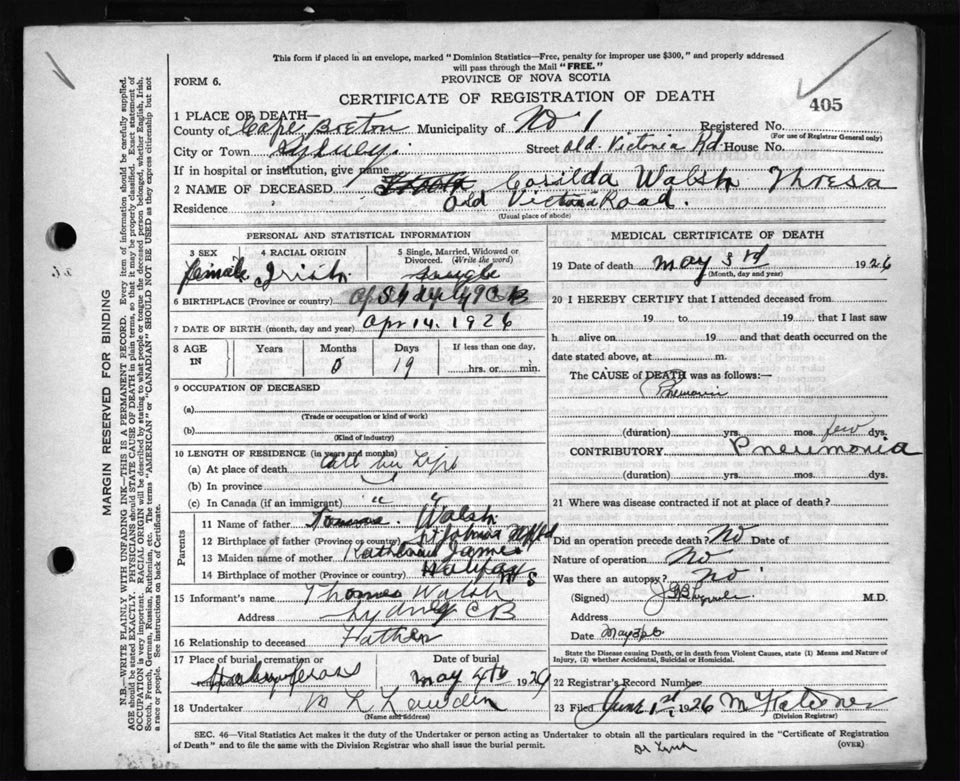 This form if placed in an envelope, marked "Dominion Statistics—Free, penalty for improper use $300," and properly addressed
will pass through the Mail "FREE."
FORM 6.
PROVINCE OF NOVA SCOTIA
CERTIFICATE OF REGISTRATION OF DEATH
405
1 PLACE OF DEATH—
County of Cape Breton Municipality of No 1 Registered No.
(For use of Registrar General only)
City or Town Sydney. Street Old Victoria Rd. House No.
If in hospital or institution, give name
2 NAME OF DECEASED Casilda Walsh Thresa
Residence Old Victoria Road.
(Usual place of abode)
PERSONAL AND STATISTICAL INFORMATION
3 SEX 4 RACIAL ORIGIN 5 Single, Married, Widowed or
Divorced. (Write the word)
female Irish Single
6 BIRTHPLACE (Province or country) Sydney C B
7 DATE OF BIRTH (month, day and year) Apr 14. 1926
8 AGE IN Years Months Days If less than one day,
0 19 hrs. or min.
9 OCCUPATION OF DECEASED
(a)
(Trade or occupation or kind of work)
(b)
(Kind of industry)
10 LENGTH OF RESIDENCE (in years and months)
(a) At place of death all her Life
(b) In province
(c) In Canada (if an immigrant) " "
Parents
11 Name of father Walsh
12 Birthplace of father (Province or country) St Johns Nfld
13 Maiden name of mother Kathleen James
14 Birthplace of mother (Province or country) Halifax N S
15 Informant's name Thomas Walsh
Address Sydney C B
16 Relationship to deceased Father
17 Place of burial, cremation or removal Date of burial
May 4th 1926
18 Undertaker
(Name and Address)
MEDICAL CERTIFICATE OF DEATH
19 Date of death May 3rd 1926
(Month, day and year)
20 I HEREBY CERTIFY that I attended deceased from
19 to 19 that I last saw
h alive on 19 and that death occurred on the
date stated above, at m.
The CAUSE of DEATH was as follows:—
Pneumonia
(duration) yrs. mos. few dys.
CONTRIBUTORY Pneumonia
(duration) yrs. mos. dys.
21 Where was disease contracted if not at place of death?
Did an operation precede death? No Date of
Nature of operation No
Was there an autopsy? No
(Signed) M.D.
Address
Date May 3/26
State the Disease causing Death, or in death from Violent Causes, state (1) Means and Nature of
Injury, (2) whether Accidental, Suicidal or Homicidal.
22 Registrar's Record Number
23 Filed June 1st 1926
(Division Registrar)
SEC. 46—Vital Statistics Act makes it the duty of the Undertaker or person acting as Undertaker to obtain all the particulars required in the "Certificate of Registration
of Death" and to file the same with the Division Registrar who shall issue the burial permit. (OVER)
MARGIN RESERVED FOR BINDING
N.B.—WRITE PLAINLY WITH UNFADING INK—THIS IS A PERMANENT RECORD. Every item of information should be carefully supplied.
AGE should be stated EXACTLY. PHYSICIANS should STATE CAUSE OF DEATH in plain terms, so that it may be properly classified. Exact statement of
OCCUPATION is very important. RACIAL ORIGIN will be described by stating to what people or tongue the deceased person belonged, whether English, Irish,
Scotch, French, German, Russian, Ruthenian, etc. The terms "AMERICAN" or "CANADIAN" SHOULD NOT BE USED as they express citizenship but not
a race or people. See instructions on back of Certificate.